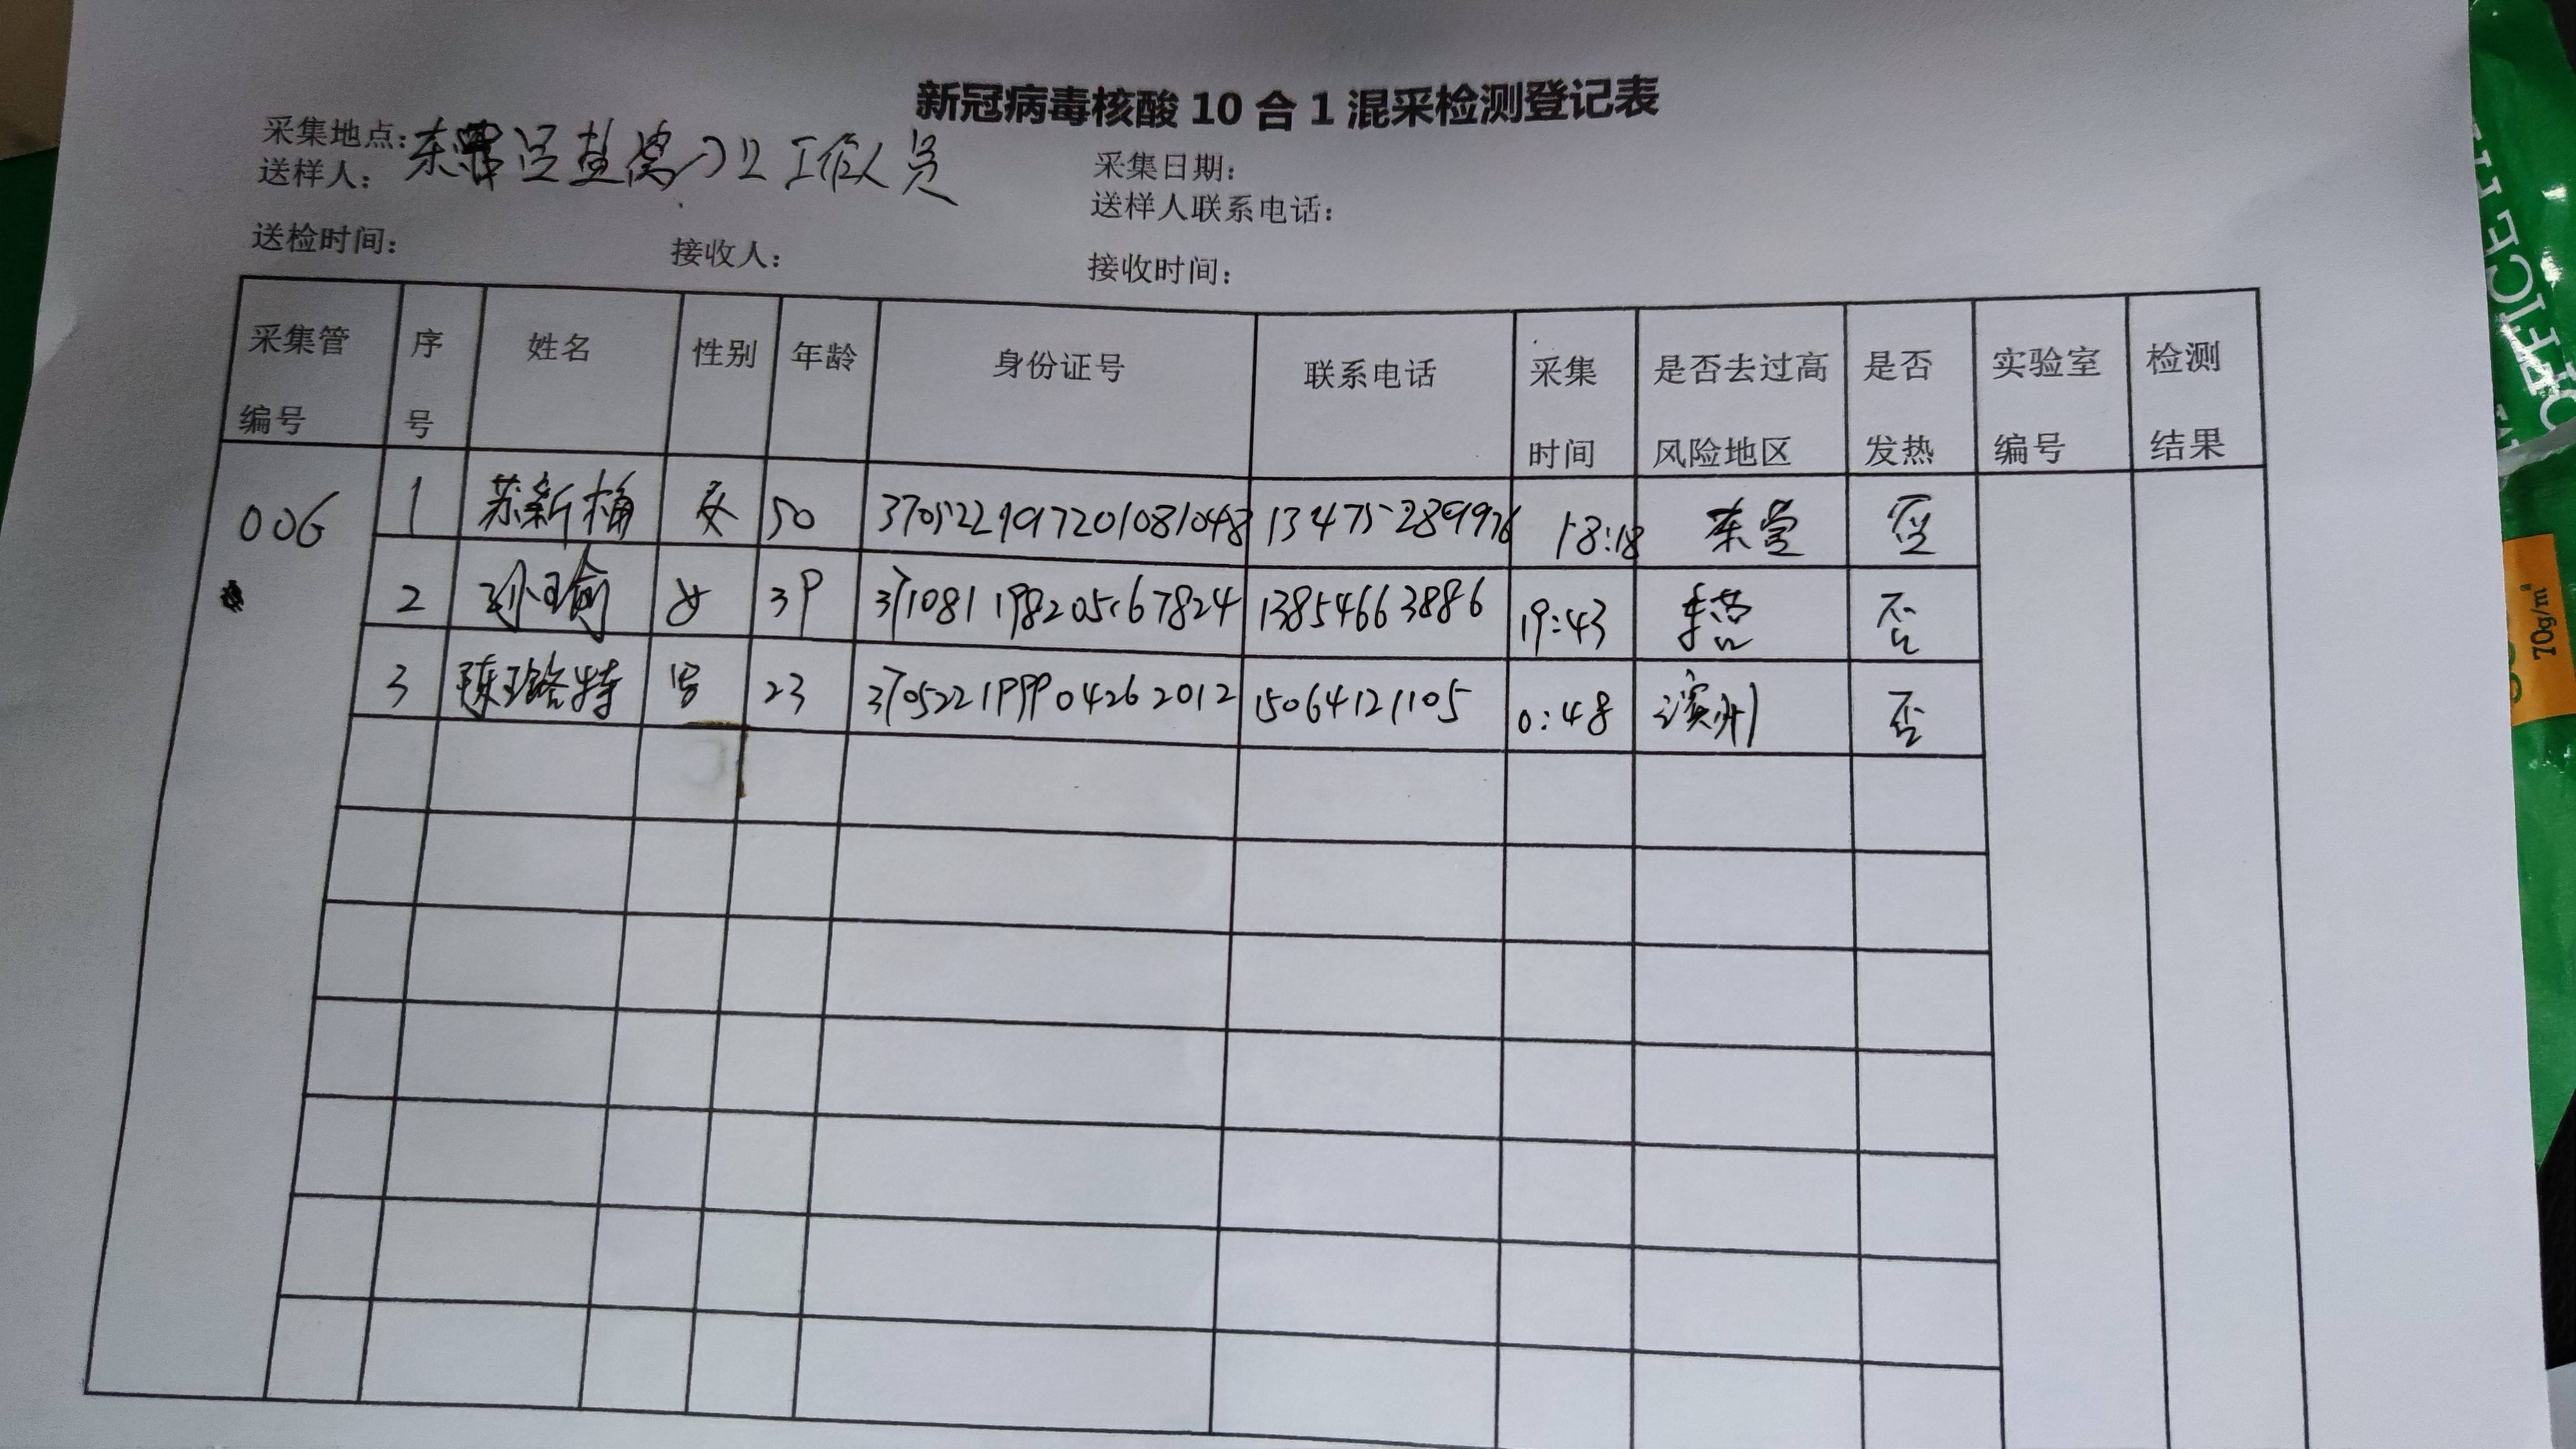 新冠病毒核酸10合1混采检测登记表
采集地点：东营区盐窝 工作人员
送样人： 采集日期：
送样人联系电话：
送检时间： 接收人： 接收时间：
采集管编号 序号 姓名 性别 年龄 身份证号 联系电话 采集时间 是否去过高风险地区 是否发热 实验室编号 检测结果
006 1 苏新梅 女 50 370522197201081048 13475289976 18:18 东营 否
2 孙瑜 女 39 371081198205167824 13854663886 19:43 东营 否
3 陈璐特 男 23 370522199904262012 15064121105 0:48 滨州 否
OFFICE
70g/m²